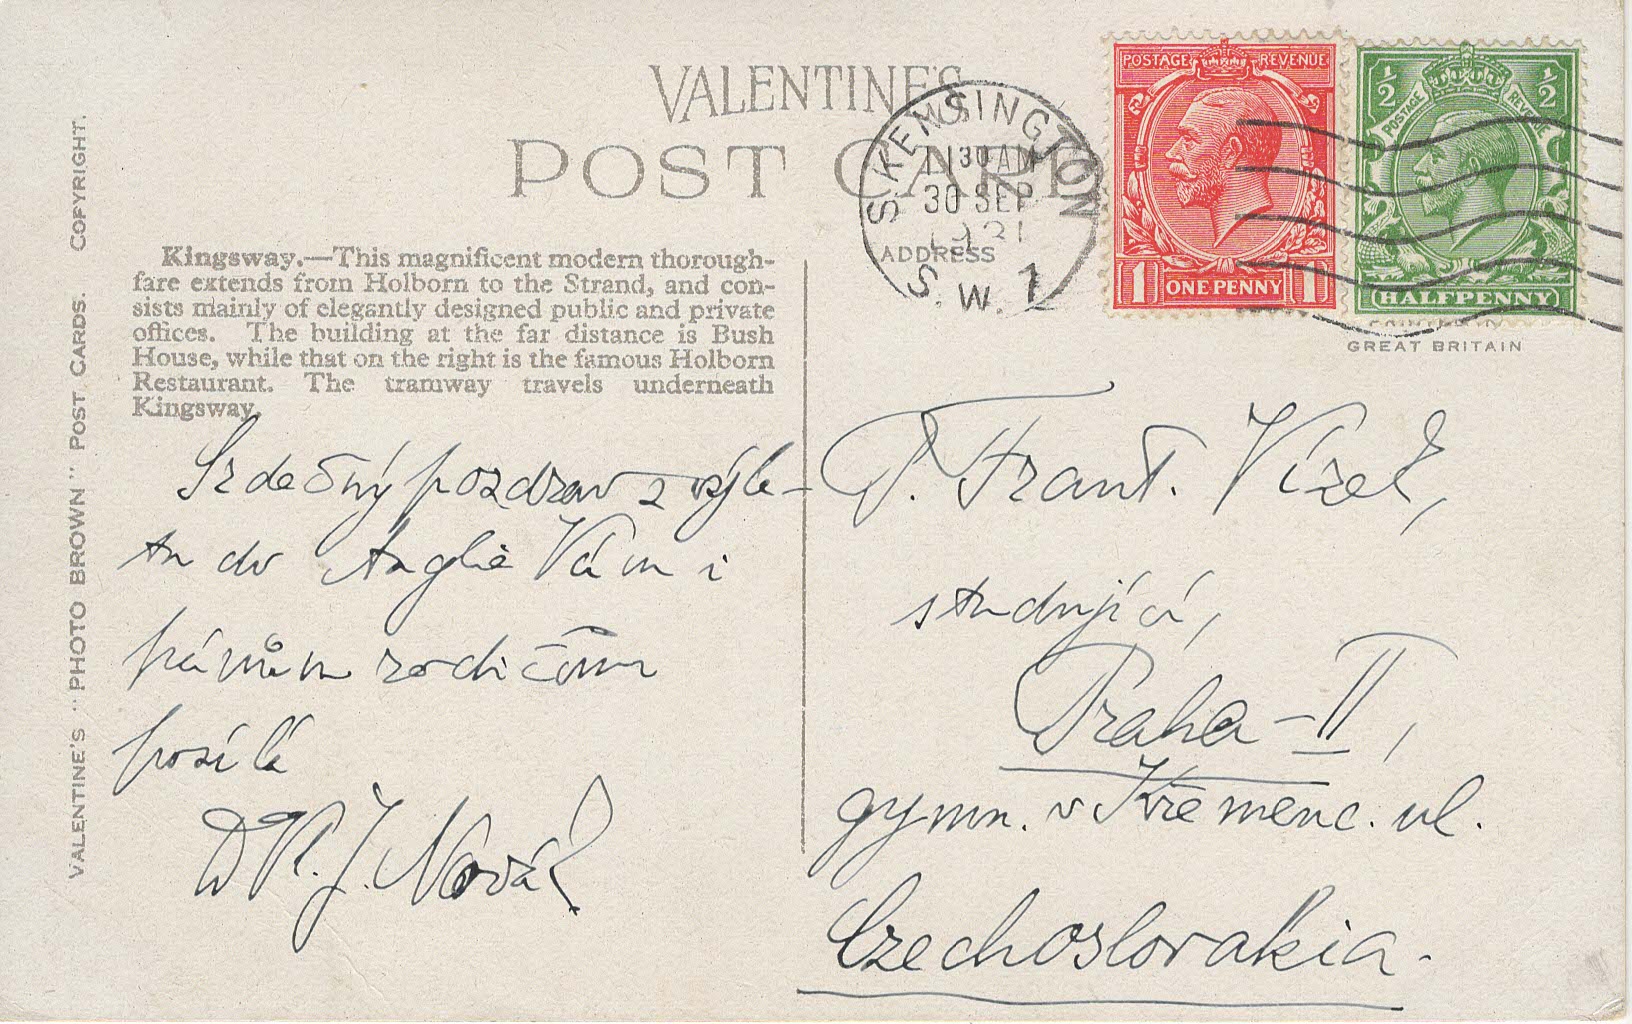 VALENTINE'S
POST CARD
S. KENSINGTON
11 30 AM
30 SEP
1931
S. W. 7
ADDRESS
POSTAGE REVENUE
1 ONE PENNY 1
½ ½
POSTAGE REVENUE
HALFPENNY
GREAT BRITAIN
VALENTINE'S "PHOTO BROWN" POST CARDS. COPYRIGHT.
Kingsway.—This magnificent modern thorough-
fare extends from Holborn to the Strand, and con-
sists mainly of elegantly designed public and private
offices. The building at the far distance is Bush
House, while that on the right is the famous Holborn
Restaurant. The tramway travels underneath
Kingsway.
Srdečný pozdrav z výle-
tu do Anglie Vám i
pánům rodičům
posílá
Dr. J. Novák
P. T. Frant. Vízek,
studující,
Praha-II,
gymn. v Křemenc. ul.
Czechoslovakia.